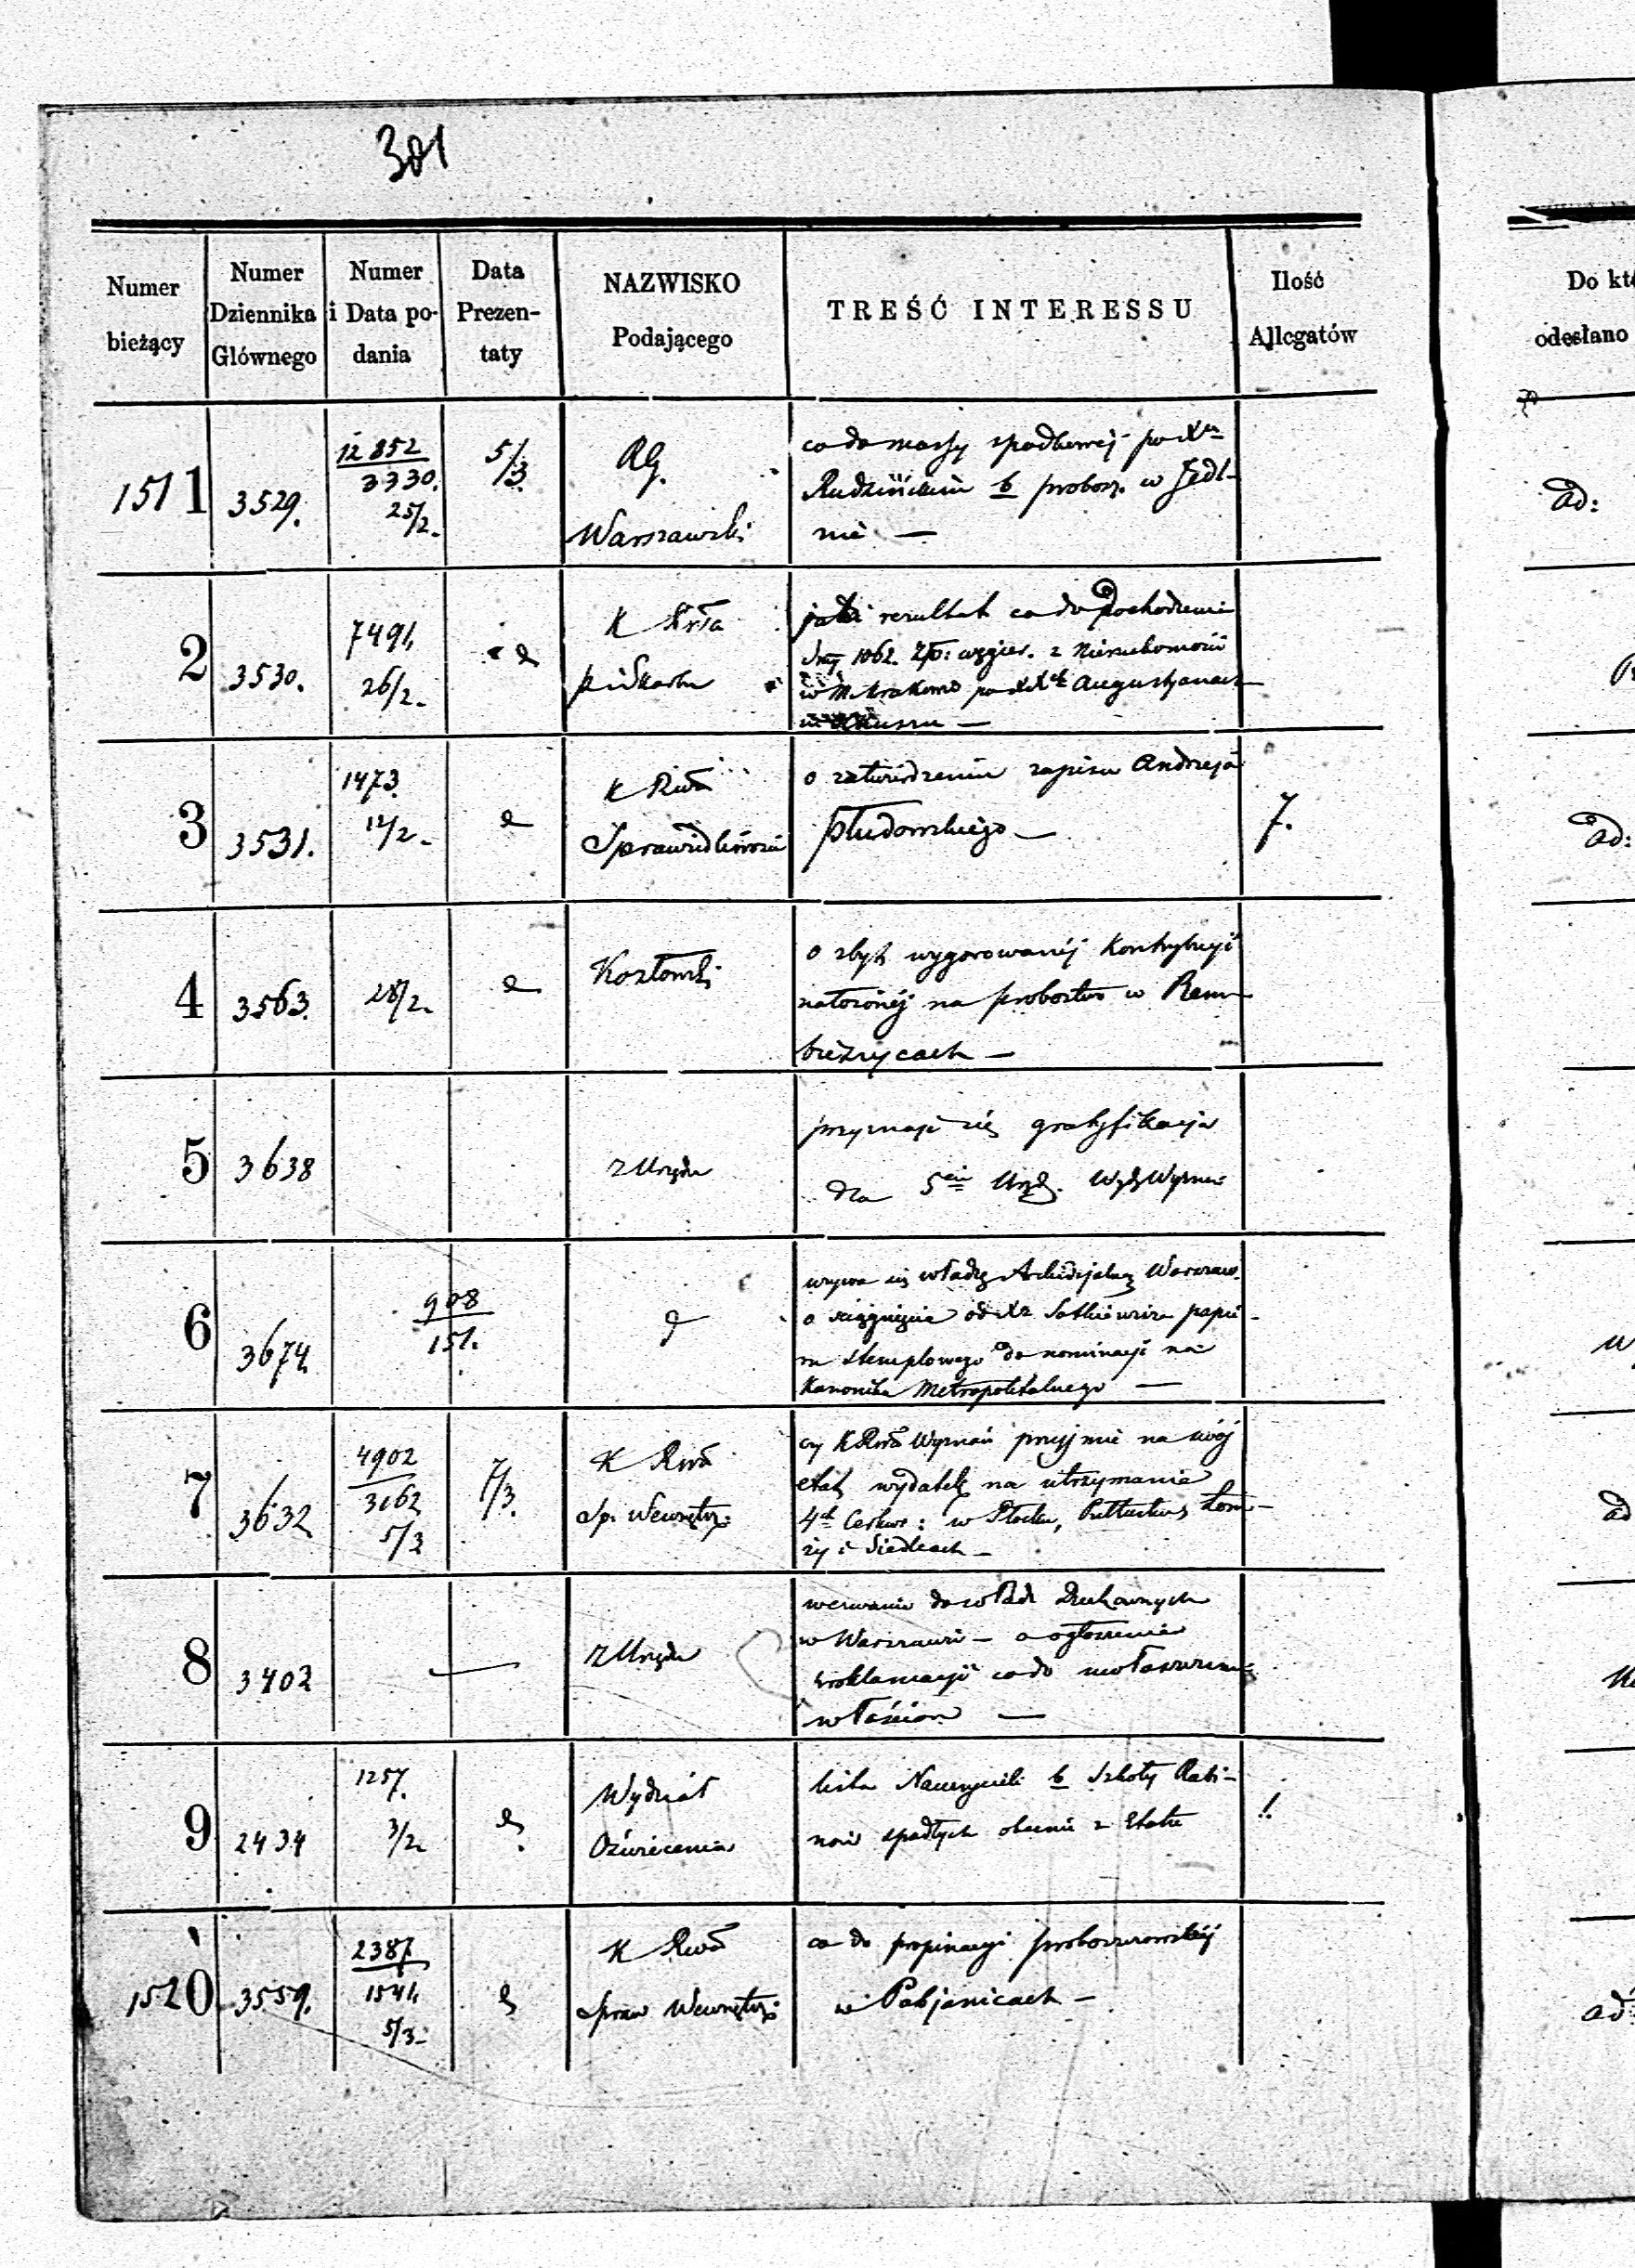 301
Numer bieżący
Numer Dziennika Głównego
Numer i Data podania
Data Prezentaty
NAZWISKO Podającego
TREŚĆ INTERESSU
Ilość Allegatów
Do kt
odesłano
1511
3529.
12852
3330.
25/2.
5/3
RG.
Warszawski
co do massy spadkowej po Xu
Rudzińskim b probosz. w Jedl-
nie —
ad:
2
3530.
7491,
26/2.
K
rezultat co do pochodzenia
1062. węgier. z Nieruchomości
w M. Krakowie Augustjanach
3
3531.
1473.
12/2.
K Rwa
Sprawiedliwości
o zatwierdzeniu zapisu Andrzeja
Płudowskiego —
7.
ad:
4
3563.
28/2.
Kozłowski
o zbyt wygorowanéj Kontrybucyi
nałożonéj na probostwo w Rem-
bieżycach —
5
3638
z Urzędu
przyznaje się gratyfikacja
dla 5ciu Urzęd. Wydz Wyznań
6
3674
908
151.
wzywa się władzę Archidjalną Warszaw.
o ściągnięcie od Xa papie-
ru stemplowego do nominacji na
Kanonika Metropolitalnego —
7
3632
4902
3162
5/3
7/3.
K Rwa
Sp. Wewnętrz:
czy K Rwa Wyznań przyjmie na swój
etat wydatek na utrzymanie
4ch Cerkw: w Płocku, Pułtusku, Łom-
ży i Siedlcach —
ad
8
3402
z Urzędu
wezwanie do władz Duchownych
w Warszawie — o ogłoszenie
proklamacji co do uwłaszczenia
włościan —
9
2434
1257.
3/2
Wydział
Oświecenia
lista Nauczycieli b Szkoły Rabi-
nów spadłych obecnie z Etatu
1.
1520
3559.
2387
1541,
5/3.
K Rwa
Spraw Wewnętrz:
co do propinacyi proboszczowskiéj
w Pabjanicach —
ad: